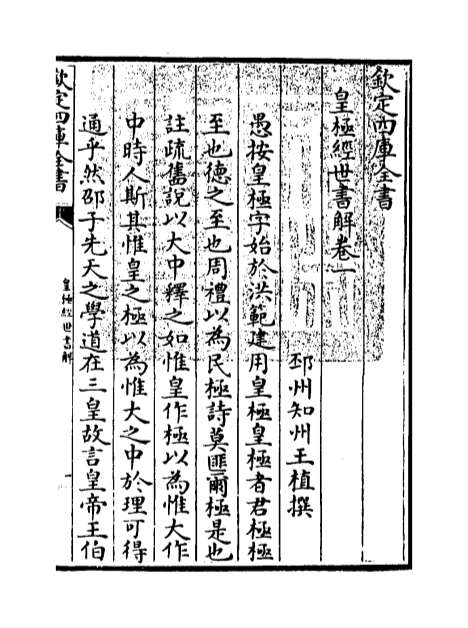 欽定四庫全書
皇極經世書解卷一
邳州知州王植撰
愚按皇極字始於洪範建用皇極皇極者君極極
至也德之至也周禮以為民極詩莫匪爾極是也
註疏舊說以大中釋之如惟皇作極以為惟大作
中時人斯其惟皇之極以為惟大之中於理可得
通乎然邵子先天之學道在三皇故言皇帝王伯
欽定四庫全書
皇極經世書解
一